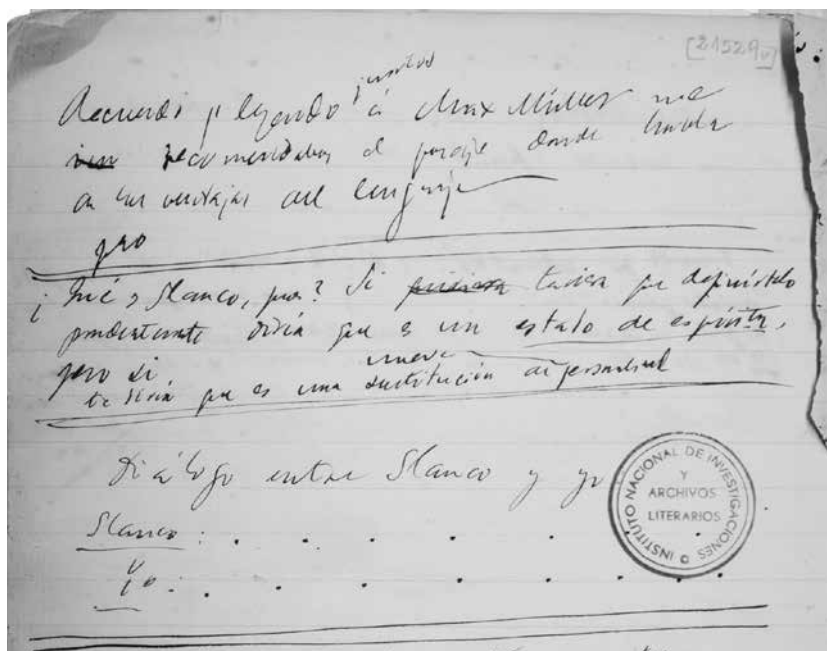 [21529v]
juntos
Recuerdo q leyendo á Max Müller me
recomendabas el paraje donde habla
de las ventajas del lenguaje
pro
¿Qué es Slanco, pues? Si quisiera tuviera que definírtelo
prudentemente diría que es un estado de espíritu,
pero si
te diría que es una nueva sustitución de personalidad
Diálogo entre Slanco y yo
Slanco: . . . . . . .
Yo: . . . . . . .
INSTITUTO NACIONAL DE INVESTIGACIONES
Y
ARCHIVOS
LITERARIOS